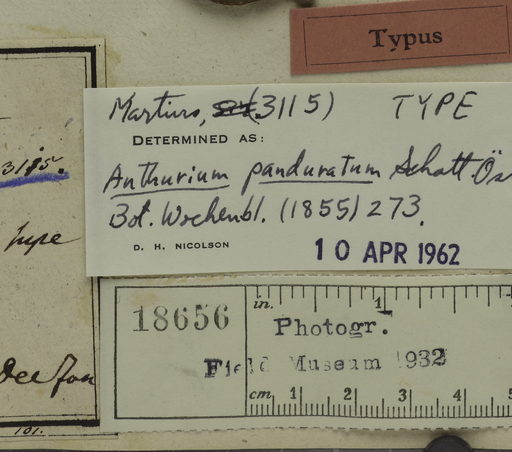 Typus
Martius, (3115) TYPE
DETERMINED AS:
Anthurium panduratum Schott Ös
Bot. Wochenbl. (1855) 273.
D. H. NICOLSON
10 APR 1962
3115.
18656
in. 1
Photogr.
Field Museum 1932
cm 1 2 3 4 5
101.